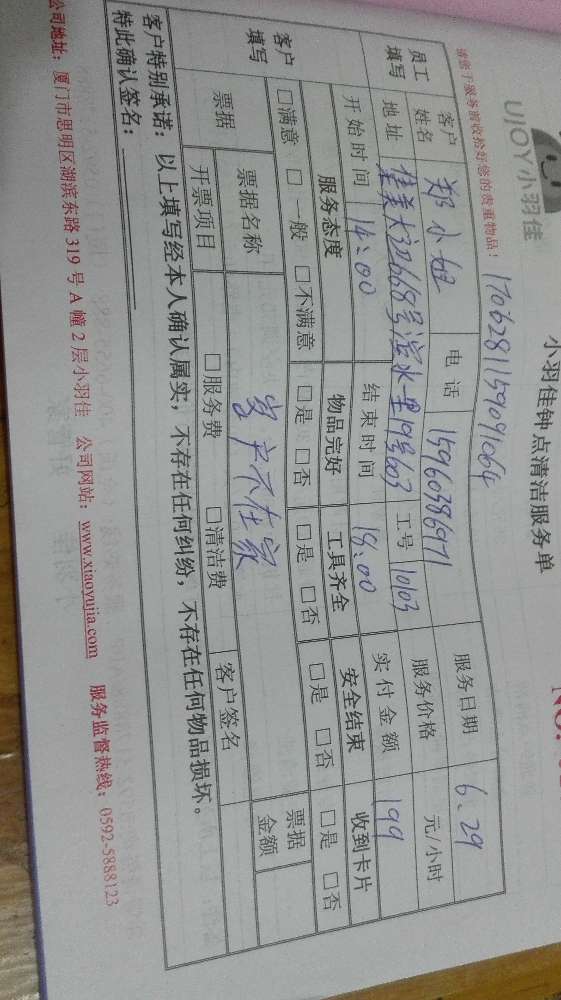 UJOY小羽佳
小羽佳钟点清洁服务单
NO.
请您于服务前收拾好您的贵重物品！
1706281159091064
员工填写
客户姓名 郑小姐 电话 15960386971 服务日期 6.29
地址 佳美大边668号 水一里19号603 工号 10103 服务价格 元/小时
开始时间 14:00 结束时间 18:00 实付金额 199
客户填写
服务态度 物品完好 工具齐全 安全结束 收到卡片
□满意 □一般 □不满意 □是 □否 □是 □否 □是 □否 □是 □否
票据 票据名称 客户不在家 票据金额
开票项目 □服务费 □清洁费 客户签名
客户特别承诺：以上填写经本人确认属实，不存在任何纠纷，不存在任何物品损坏。
特此确认签名：
公司地址：厦门市思明区湖滨东路319号A幢2层小羽佳 公司网站：www.xiaoyujia.com 服务监督热线：0592-5888123